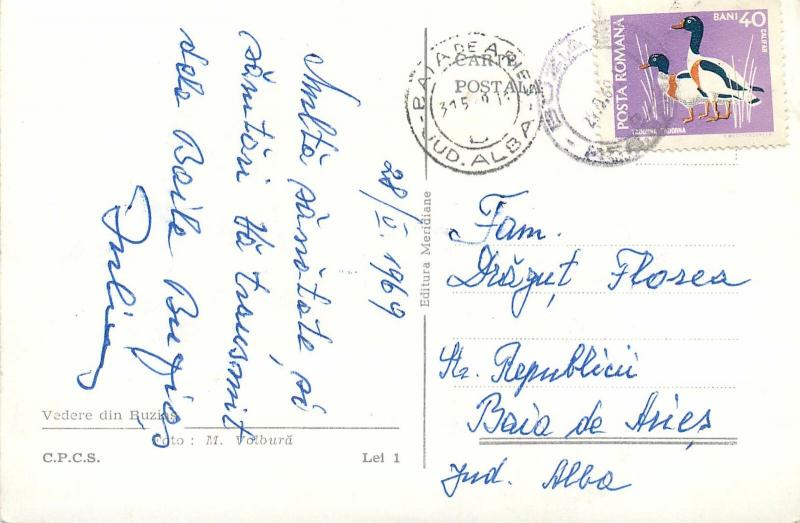 Multă sănătate și
sărutări vă transmit
dela Baile Buziaș
Iuliu
28/V.1969
Vedere din Buziaș
Foto : M. Volbură
C.P.C.S.
Lei 1
Editura Meridiane
CARTE
POȘTALĂ
BAIA DE ARIEȘ
JUD. ALBA
POSTA ROMANA
BANI 40
CALIFAR
TADORNA TADORNA
Fam.
Drăguț Florea
Str. Republicii
Baia de Arieș
Jud. Alba